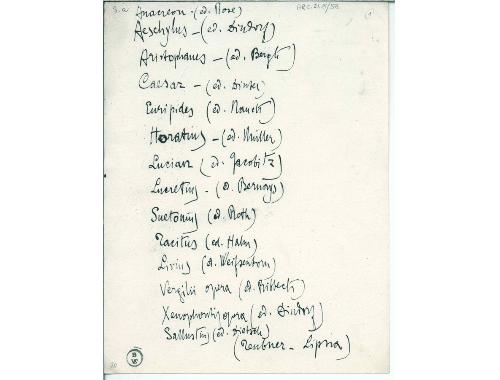 s.a Anacreon - (ed. Rose) ARC.21.A/58
Aeschylus - (ed. Dindorf)
Aristophanes - (ed. Bergk)
Caesar - (ed. Dinter)
Euripides (ed. Nauck)
Horatius - (ed. Müller)
Lucian (ed. Jacobitz)
Lucretius - (ed. Bernays)
Suetonius (ed. Roth)
Tacitus (ed. Halm)
Livius (ed. Weifsenborn)
Vergilii opera (ed. Ribbeck)
Xenophontis opera (ed. Dindorf)
Sallustius (ed. Dietsch)
(Teubner - Lipsia)